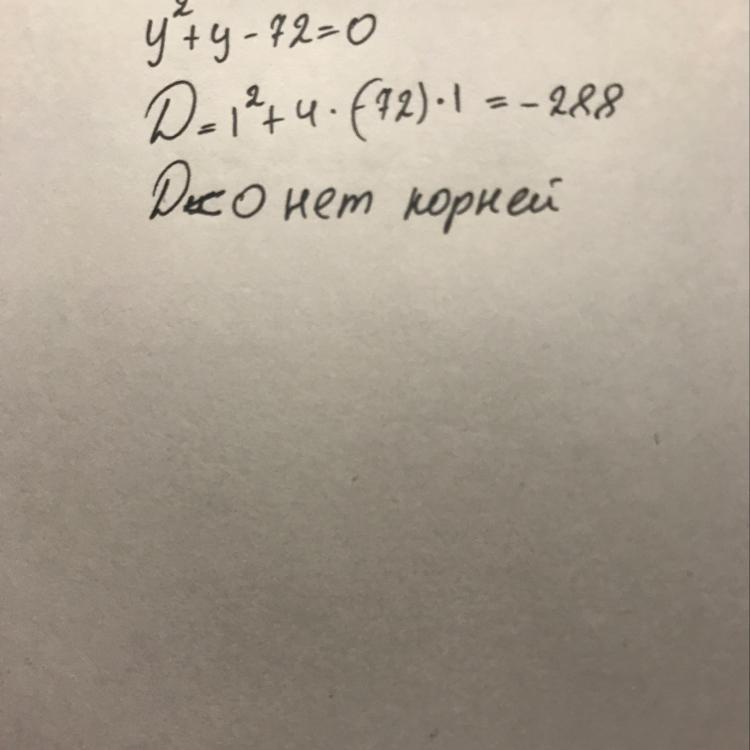 y²+y-72=0
D=1²+4·(-72)·1=-288
D<0 нет корней